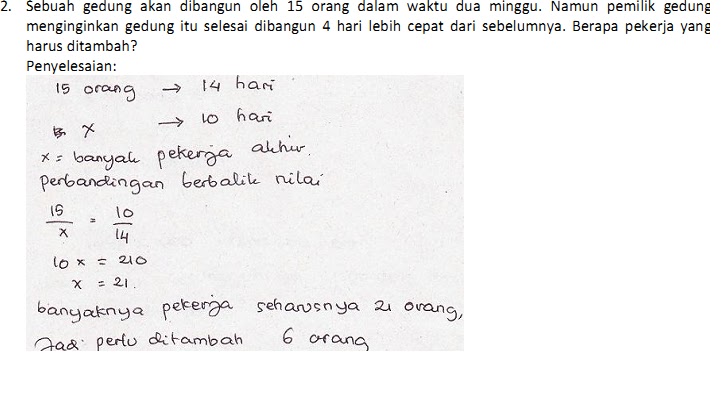 2. Sebuah gedung akan dibangun oleh 15 orang dalam waktu dua minggu. Namun pemilik gedung
menginginkan gedung itu selesai dibangun 4 hari lebih cepat dari sebelumnya. Berapa pekerja yang
harus ditambah?
Penyelesaian:
15 orang → 14 hari
x → 10 hari
x = banyak pekerja akhir.
Perbandingan berbalik nilai
15/x = 10/14
10 x = 210
x = 21.
banyaknya pekerja seharusnya 21 orang,
Jadi perlu ditambah 6 orang